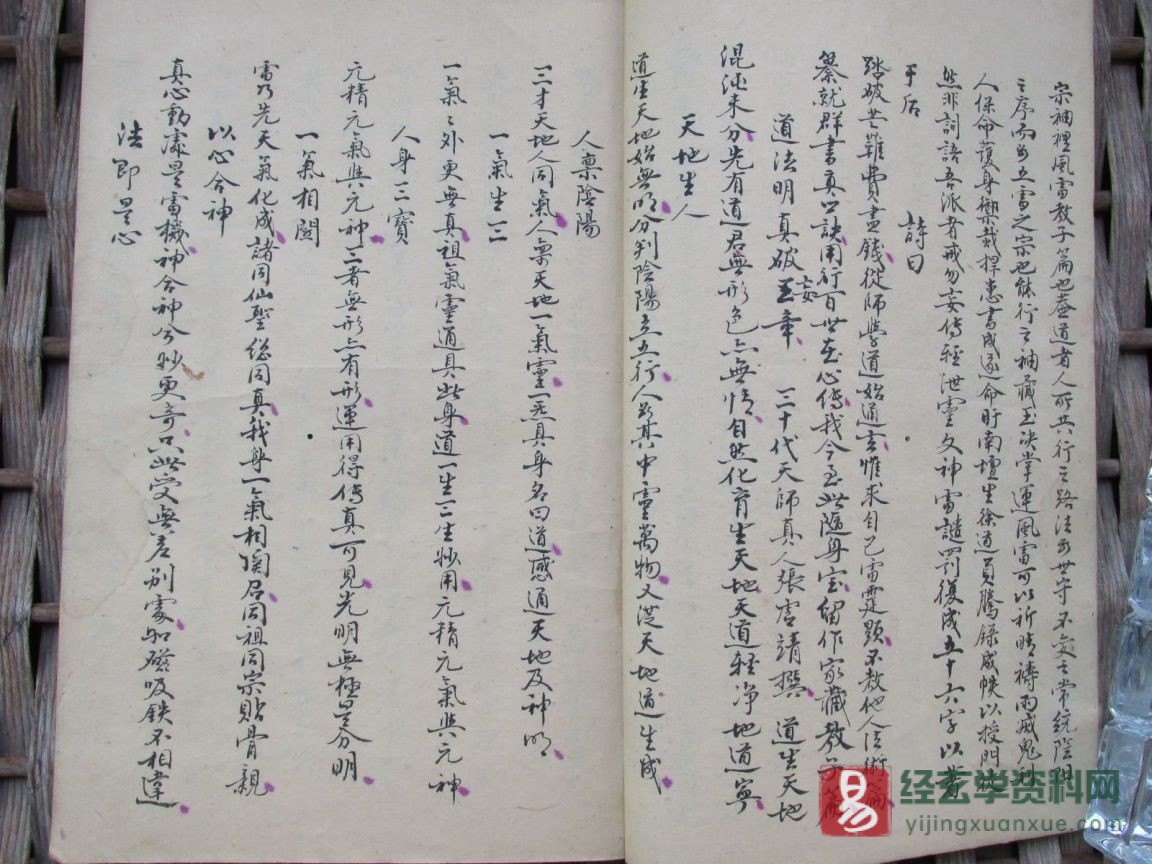 宗袖裡風雷教子篇也蓋道者人所共行之路法為世守不變之常統陰陽
之序而為五雷之宗也能行之袖藏玉決掌運風雷可以祈晴禱雨滅鬼
人保命護身禦菑捍患書成遂命盱南壇生徐道員騰錄成帙以授門
然非詞語吾派者戒勿妄傳輕泄靈文神雷譴罰復成五十六字以着
于后
詩曰
踏破芒鞋費盡錢從師學道始通玄惟求自己雷霆顯不教他人法術
纂就群書真口訣用行百世在心傳我今至此隨身宝留作家藏教子
道法明真破妄章
三十代天師真人張虛靖撰
道生天地
混沌未分先有道君無形色亦無情自然化育生天地天道輕淨地道寧
天地生人
道生天地始無明分判陰陽立五行人為其中靈萬物又從天地道生成
人稟陰陽
一三才天地人同氣人稟天地一氣靈一炁具身名曰道感通天地及神明
一氣生三
一氣之外更無真祖氣靈通具此身道一生三生妙用元精元氣與元神
人身三寶
元精元氣與元神三者無形亦有形運用得傳真可見光明無極是分明
一氣相關
雷乃先天氣化成諸同仙聖總同真我身一氣相関召同祖同宗貼骨親
以心合神
真心動處是雷機神合神兮妙更奇只此受無差別處如磁吸鉄不相違
法即是心
经玄学资料网
易
yijingxuanxue.com